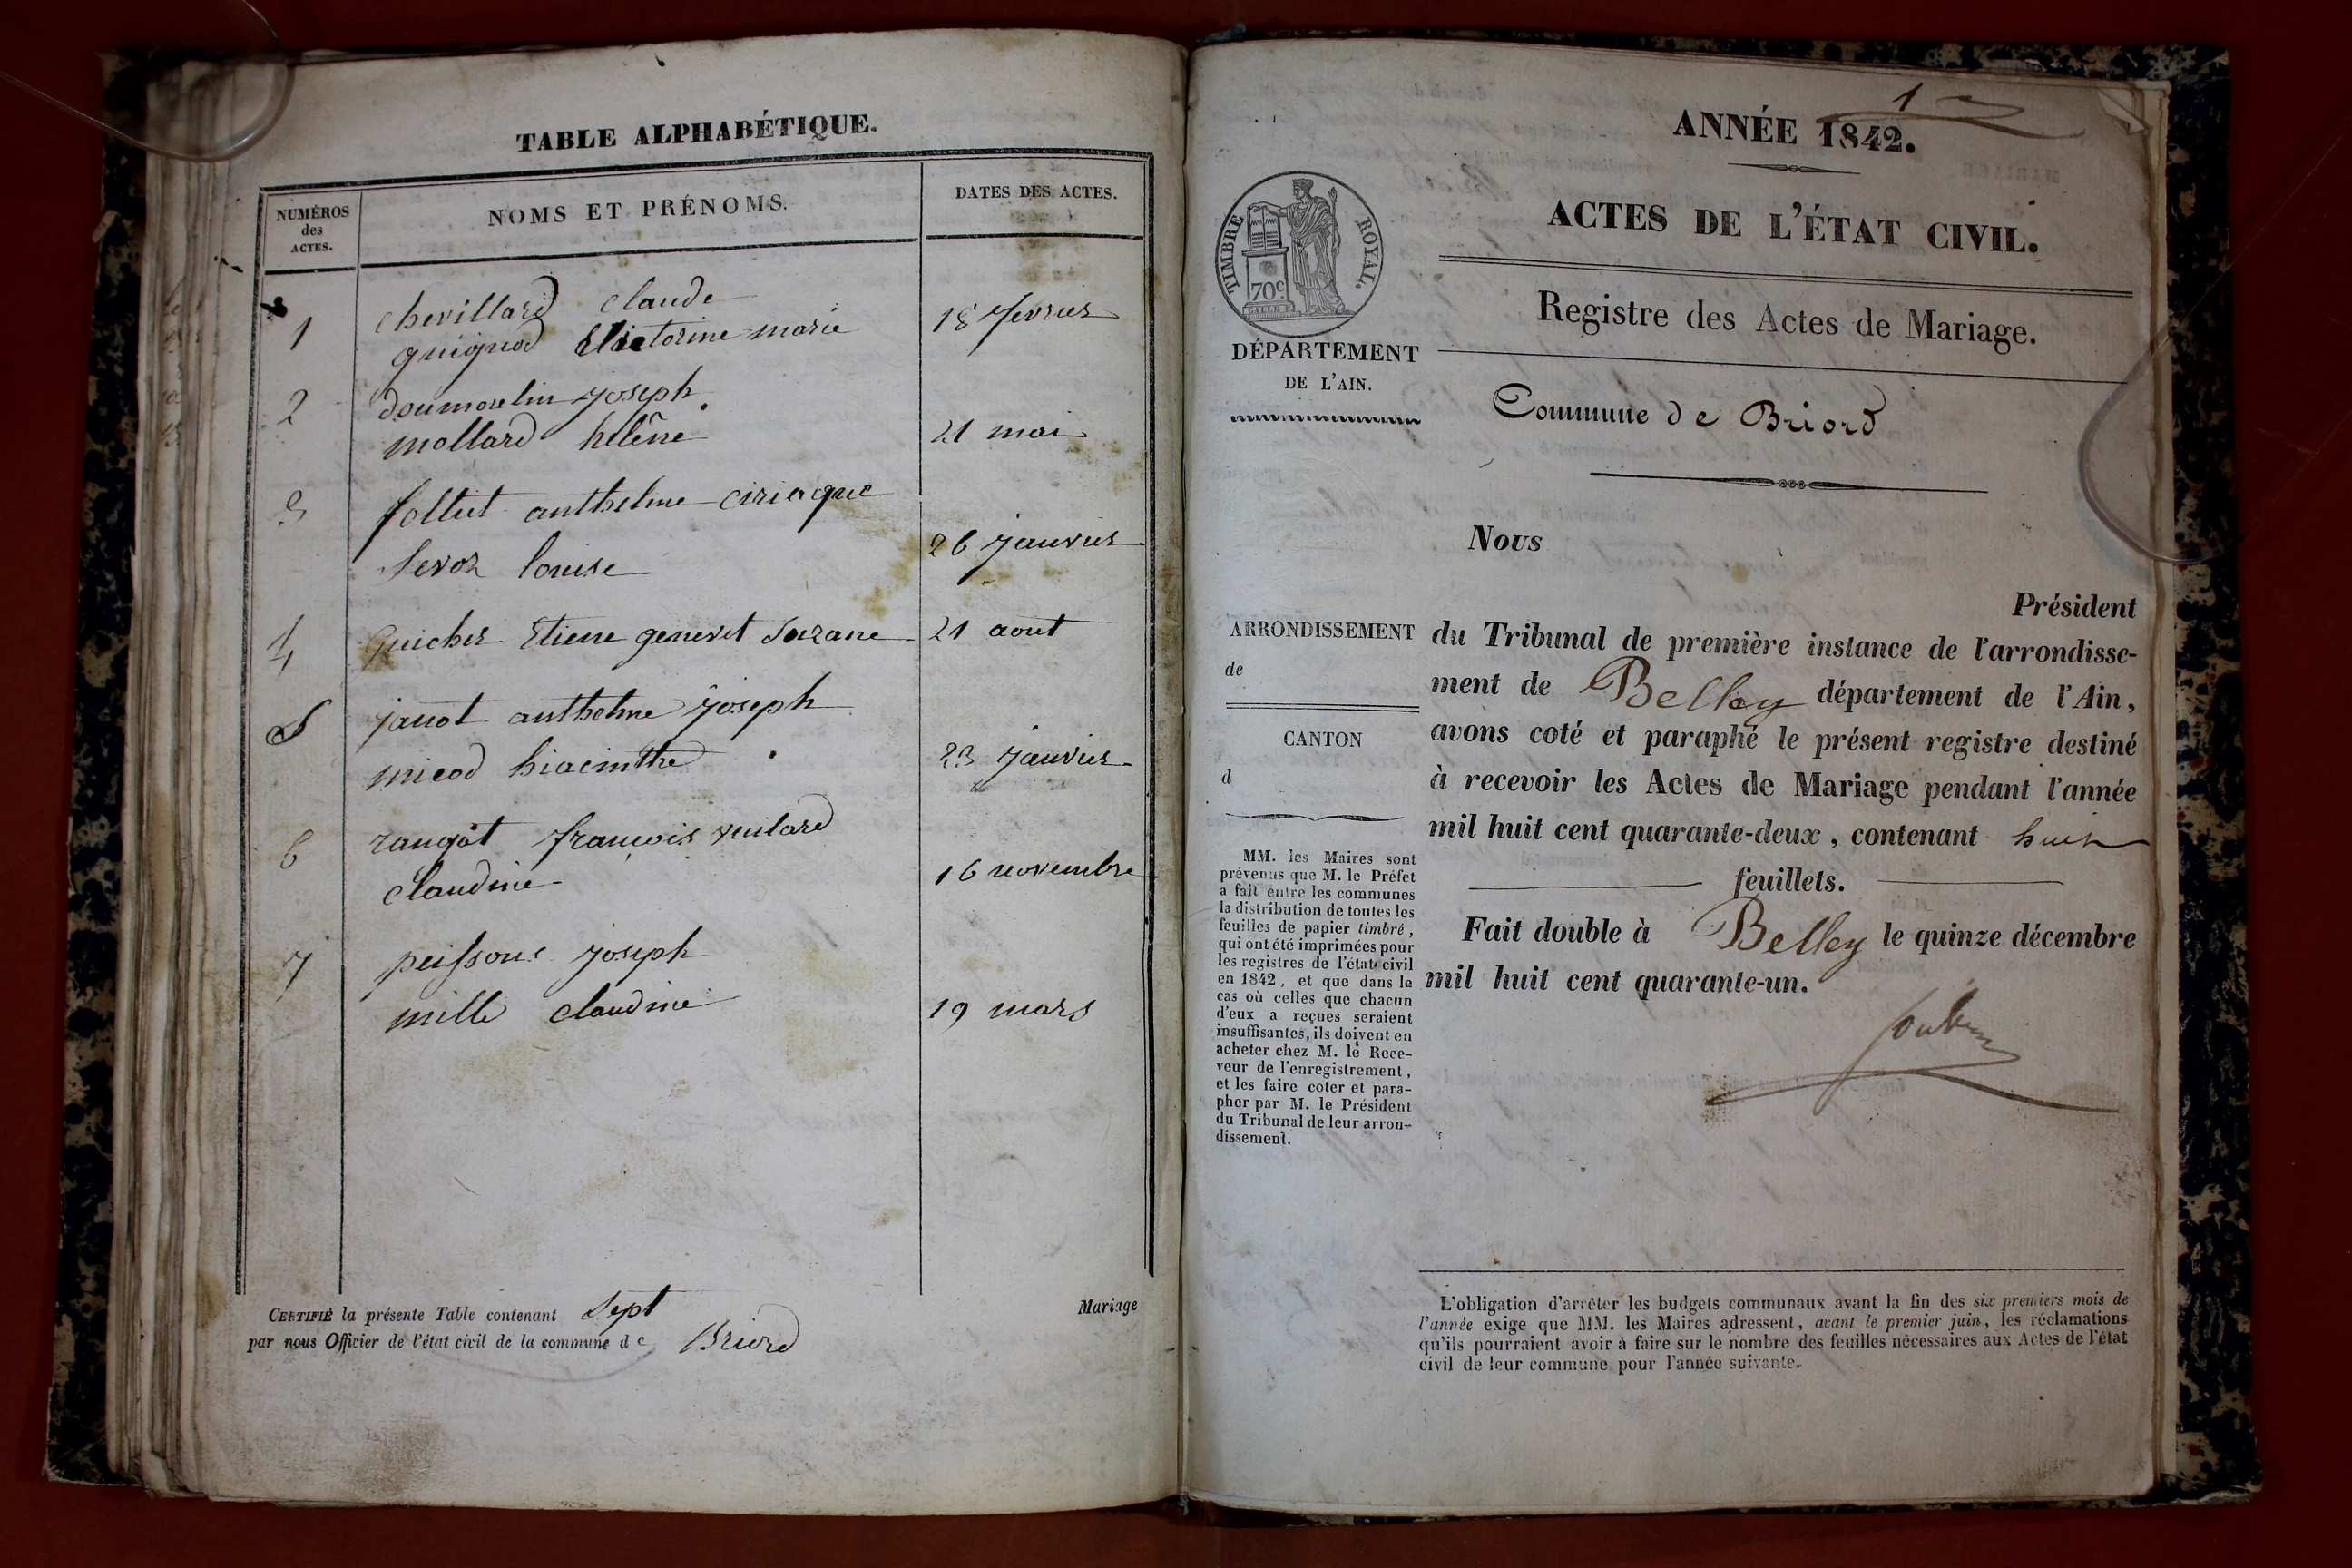 TABLE ALPHABÉTIQUE.
NUMÉROS
des
ACTES.
NOMS ET PRÉNOMS.
DATES DES ACTES.
1
chevillard claude
guignod victorine marie
18 fevrier
2
doumoulin joseph
mollard helêne
21 mai
3
folliet anthelme ciriaque
Sevoz louise
26 janvier
4
Guicher Etiene genevet Suzane
21 aout
5
janot anthelme joseph
micod hiacinthe
23 janvier
6
rangot francois vuilard
claudine
16 novembre
7
peissone joseph
mille claudine
19 mars
CERTIFIÉ la présente Table contenant Sept
Mariage
par nous Officier de l'état civil de la commune de Briord
1
ANNÉE 1842.
ACTES DE L'ÉTAT CIVIL.
TIMBRE ROYAL.
70c
Registre des Actes de Mariage.
DÉPARTEMENT
DE L'AIN.
Commune de Briord
Nous
Président
ARRONDISSEMENT
de
CANTON
d
du Tribunal de première instance de l'arrondisse-
ment de Belley département de l'Ain,
avons coté et paraphé le présent registre destiné
à recevoir les Actes de Mariage pendant l'année
mil huit cent quarante-deux, contenant huit
feuillets.
Fait double à Belley le quinze décembre
mil huit cent quarante-un.
MM. les Maires sont
prévenus que M. le Préfet
a fait entre les communes
la distribution de toutes les
feuilles de papier timbré,
qui ont été imprimées pour
les registres de l'état civil
en 1842, et que dans le
cas où celles que chacun
d'eux a reçues seraient
insuffisantes, ils doivent en
acheter chez M. le Rece-
veur de l'enregistrement,
et les faire coter et para-
pher par M. le Président
du Tribunal de leur arron-
dissement.
L'obligation d'arrêter les budgets communaux avant la fin des six premiers mois de
l'année exige que MM. les Maires adressent, avant le premier juin, les réclamations
qu'ils pourraient avoir à faire sur le nombre des feuilles nécessaires aux Actes de l'état
civil de leur commune pour l'année suivante.